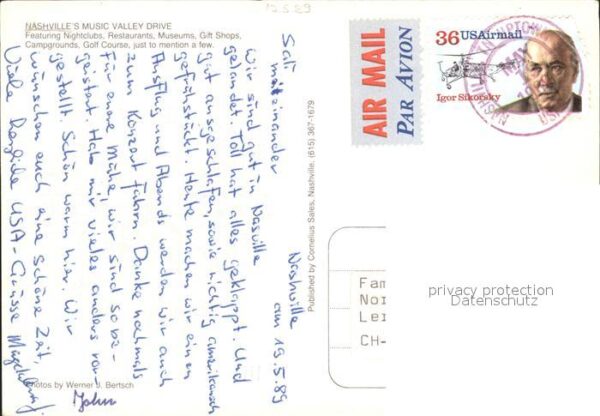 12.5.89
NASHVILLE'S MUSIC VALLEY DRIVE
Featuring Nightclubs, Restaurants, Museums, Gift Shops,
Campgrounds, Golf Course, just to mention a few.
Nashville
am 19.5.89
Sali miteinander
Wir sind gut in Nasville
gelandet. Toll hat alles geklappt. Und
gut ausgeschlafen, sowie richtig amerikanisch
gefühstückt. Heute machen wir einen
Ausflug und Abends werden wir auch
zum Konzert fahrn. Danke nochmals
für euere Mühe, wir sind so be-
geistert. Hab mir vieles anders vor-
gestellt. Schön warm hier. Wir
wünschen euch eine schöne Zeit,
Viele herzliche USA-Grüsse Magdalena
John
Photos by Werner J. Bertsch
Published by Cornelius Sales, Nashville, (615) 367-1679
AIR MAIL
PAR AVION
36 USAirmail
Igor Sikorsky
Fam
Nor
Ler
CH-
privacy protection
Datenschutz